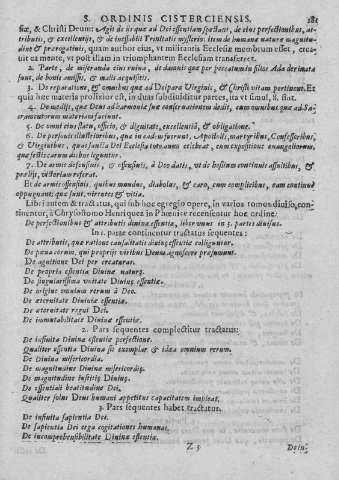 S. ORDINIS CISTERCIENSIS. 281
sicæ, & Christi Deum: Agit de iis quæ ad Dei essentiam spectant, de eius perfectionibus, at-
tributis, & excellentijs, & de ineffabili Trinitatis mysterio: item de humanæ naturæ magnitu-
dine & prærogatiuis, quam author eius, vt militantis Ecclesiæ membrum esset, crea-
uit ea mente, vt post illam in triumphantem Ecclesiam transferret.
2. Parte, de miseranda eius ruina, de damnis quæ per peccatum in filios Adæ deriuata
sunt, de bonis amissis, & malis acquisitis.
3. De reparatione, & omnibus quæ ad Deiparæ Virginis, & Christi vitam pertinent. Et
quia hæc materia prolixior est, in duas subdiuiditur partes, ita vt simul, 8. sint.
4. De medijs, quæ Deus ad harmoniæ suæ conseruationem dedit, cum omnibus quæ ad Sa-
cramentorum materiam faciunt.
5. De omni eius statu, officio, & dignitate, excellentia, & obligatione.
6. De personis illustrioribus, quæ in ea desierunt, Apostolis, martyribus, Confessoribus,
& Virginibus, quas sancta Dei Ecclesia toto anno celebrat, cum expositione euangeliorum,
quæ festis earum diebus leguntur.
7. De armis defensiuis, & offensiuis, à Deo datis, vt de hostium continuis assultibus, &
prælijs, victoriam referat.
Et de armis offensiuis, quibus mundus, diabolus, & caro, cum complicibus, eam continuò
oppugnant: quæ sunt, virtutes & vitia.
Libri autem & tractatus, qui sub hoc egregio opere, in varios tomos diuiso, con-
tinentur, à Chrysostomo Henriquez in Phœnice recensentur hoc ordine:
De perfectionibus & attributis diuinæ essentiæ, libro vnus in 5. partes diuisus.
In 1. parte continentur tractatus sequentes:
De attributis, quæ ratione causalitatis diuinæ essentiæ colliguntur.
De pæna eorum, qui proprijs viribus Deum agnoscere præsumunt.
De agnitione Dei per creaturas.
De propria essentia Diuinæ naturæ.
De singularissima vnitate Diuinæ essentiæ.
De origine omnium rerum à Deo.
De æternitate Diuinæ essentiæ.
De æternitate regni Dei.
De immutabilitate Diuinæ essentiæ.
2. Pars sequentes complectitur tractatus:
De infinita Diuinæ essentiæ perfectione.
Qualiter essentia Diuina sit exemplar & idea omnium rerum.
De Diuina misericordia.
De magnitudine Diuinæ misericordiæ.
De magnitudine iustitiæ Diuinæ.
De essentiali beatitudine Dei.
Qualiter solus Deus humani appetitus capacitatem impleat.
3. Pars sequentes habet tractatus.
De infinita sapientia Dei.
De sapientia Dei erga cogitationes humanas.
De incomprehensibilitate Diuinæ essentiæ.
Z 3 Dein-